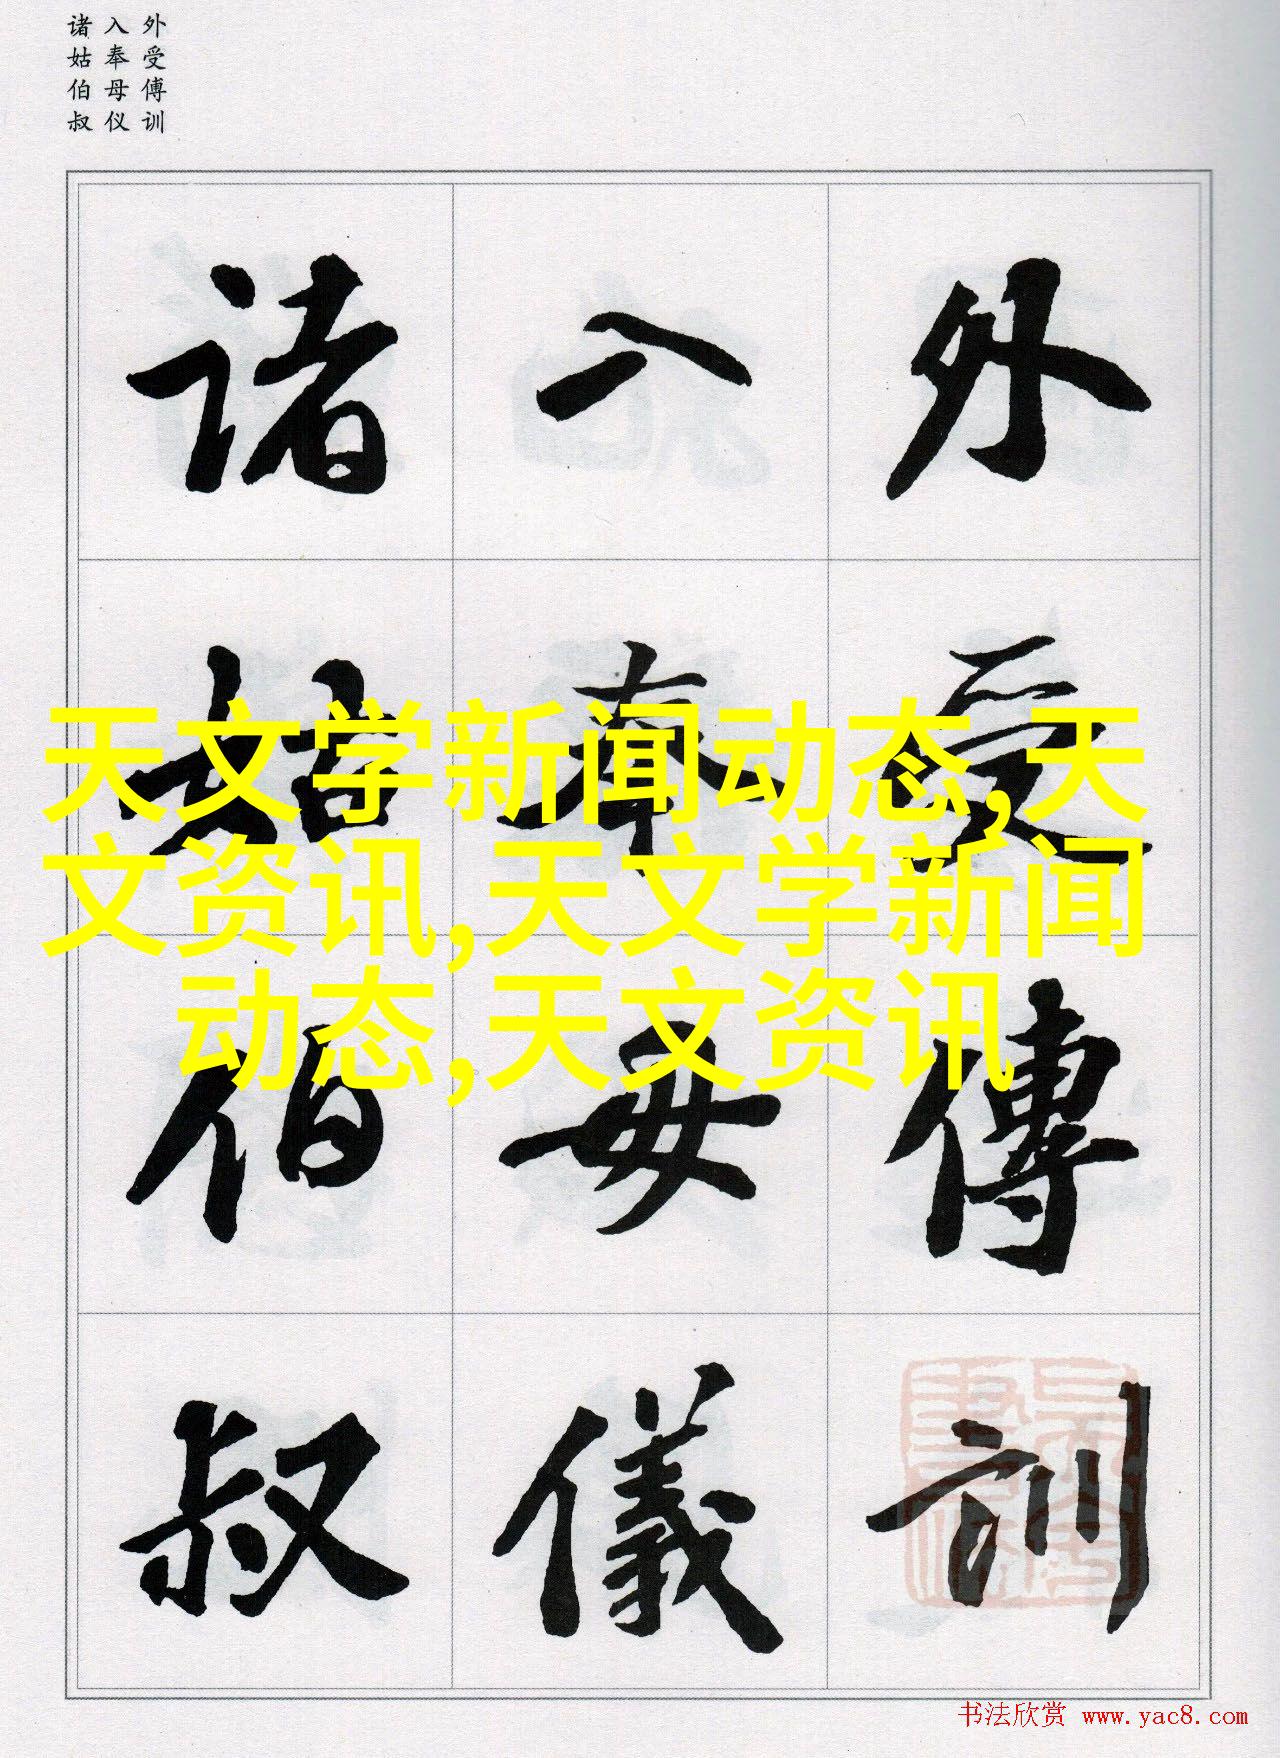 外受傅训
入奉母仪
诸姑伯叔
外受傅訓
入奉母儀
诸姑伯叔
天文学新闻动态,天
文资讯,天文学新闻
动态,天文资讯
书法欣赏 www.yac8.com